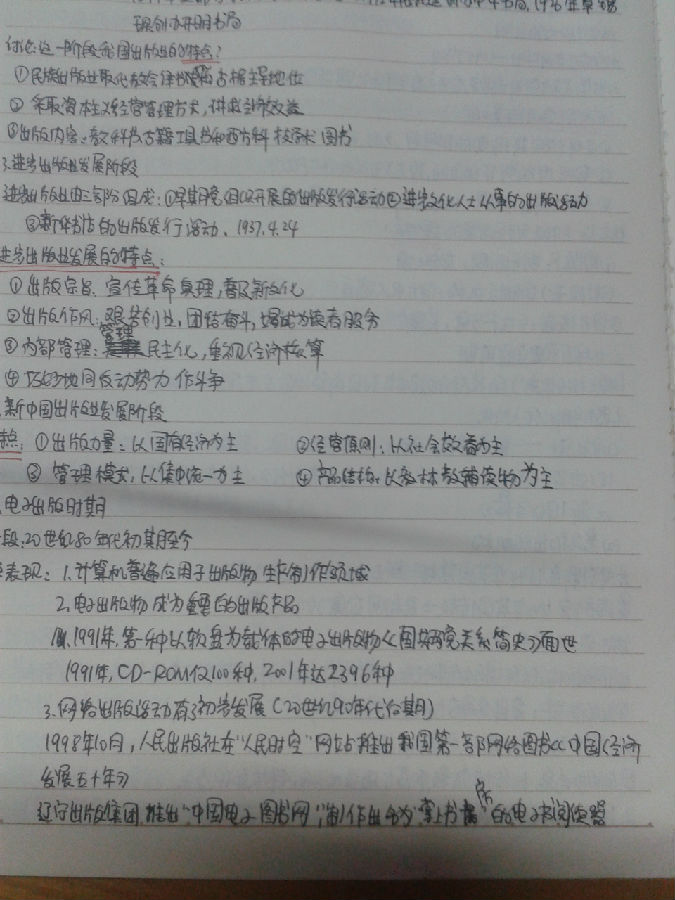 创办中华书局,1926年章锡
琛创办开明书局
讨论这一阶段我国出版业的特点?
①民族出版业取代教会 占据主导地位
② 采取资本主义经营管理方式,讲求经济效益
③出版内容:教科书古籍工具书和西方科技学术图书
3.进步出版业发展阶段
进步出版业由三部分组成:①早期党组织开展的出版发行活动②进步文化人士从事的出版活动
③新华书店的出版发行活动、1937.4.24
进步出版业发展的特点:
①出版宗旨:宣传革命真理,普及新文化
②出版作风:艰苦创业,团结奋斗,竭诚为读者服务
③内部管理:管理民主化,重视经济核算
④巧妙地同反动势力作斗争
新中国出版业发展阶段
特点:①出版力量:以国有经济为主 ②经营原则:以社会效益为主
③ 管理模式:以集中统一为主 ④产品结构:以教材教辅读物为主
电子出版时期
段:20世纪80年代初期至今
表现:1.计算机普遍应用于出版物生产制作领域
2.电子出版物成为重要的出版产品
1991年,第一种以软盘为载体的电子出版物《国共两党关系简史》面世
1991年,CD-ROM仅100种,2001年达2396种
3.网络出版活动有了初步发展(20世纪90年代后期)
1998年10月,人民出版社在"人民时空"网站推出我国第一部网络图书《中国经济
发展五十年》
辽宁出版集团推出"中国电子图书网",制作出名为"掌上书房"的电子书阅读器